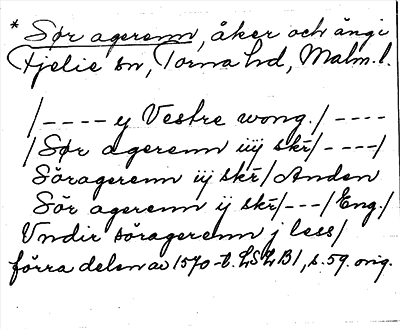 * Sør agerenn, åker och äng i
Fjelie sn, Torna hd, Malm. l.
/---- ij Vestre wong./ ----
/Sør agerenn iiij skr̄/----/
Söragerenn iij skr̄/Anden
Sör agerenn ij skr̄/---/Eng./
Vndir söragerenn j less/
förra delen av 1570-t. LSLB1, s. 59. orig.